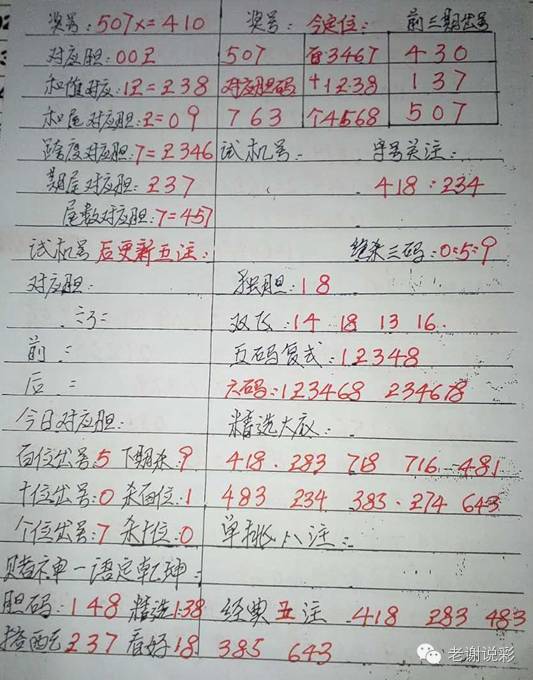 奖号:507x=410 奖号: 今定位: 前三期出号
对应胆:00Z 507 百3467 430
和值对应:1Z=Z38 对应胆码 十1238 137
和尾对应胆:Z=09 763 个4568 507
跨度对应胆:7=Z346 试机号: 字号关注:
期尾对应胆:Z37 418:234
尾数对应胆:7=457
试机号后更新五注: 绝杀三码:0:5:9
对应胆: 独胆:18
双飞:14 18 13 16.
前: 五码复式:12348
后: 六码:123468 234678
今日对应胆: 精选大底:
百位出号:5 下期杀:9 418. 283 718 716 481
十位出号:0 杀百位:1 483 234 383. 274 643
个位出号:7 杀十位:0 单挑八注:
赌神一语定乾坤:
胆码:148 精选138 经典五注 418 283 483
搭配237 看好18 385 643
老谢说彩